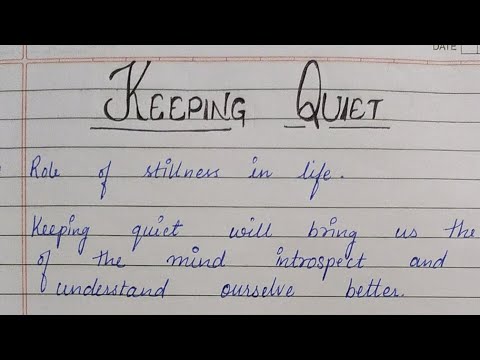 DATE
KEEPING QUIET
Role of stillness in life.
Keeping quiet will bring us the
of the mind introspect and
understand ourselve better.